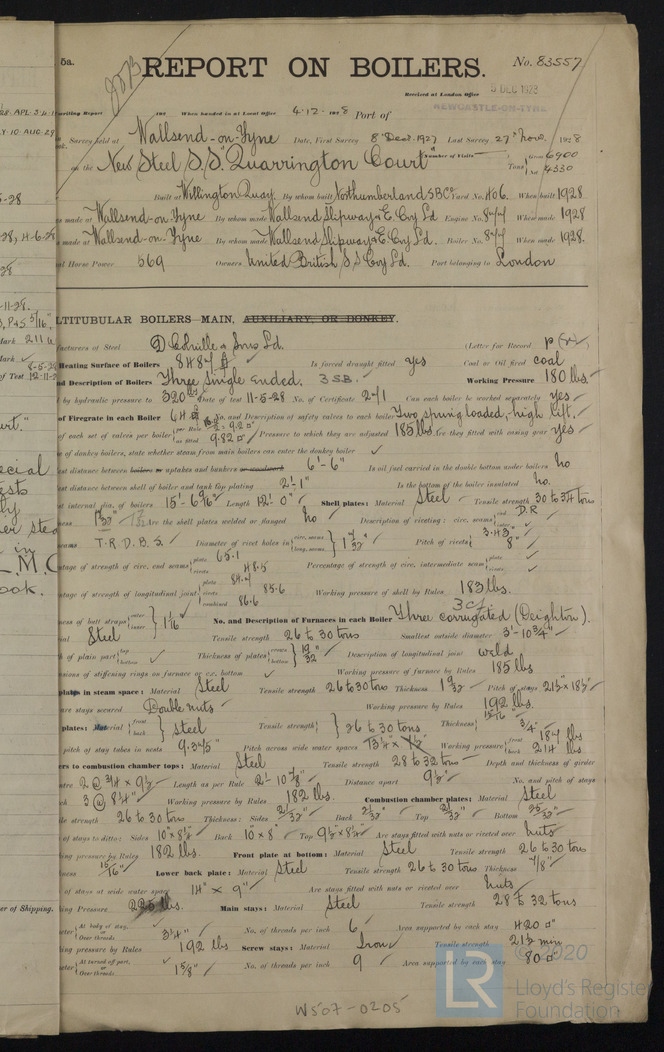 5a.
REPORT ON BOILERS.
No. 83557
Received at London Office 5 DEC 1928
NEWCASTLE-ON-TYNE
writing Report 192 When handed in at Local Office 4.12. 1928 Port of
Survey held at Wallsend-on-Tyne Date, First Survey 8th Decr. 1927 Last Survey 27th Novr. 1928
on the New Steel S.S. "Quarrington Court" (Number of Visits Tons Gross 6900 Net 4330
Built at Willington Quay By whom built Northumberland S.B. Co. Yard No. 406. When built 1928
s made at Wallsend-on-Tyne By whom made Wallsend Slipway & E. Coy Ld Engine No. 844 When made 1928
s made at Wallsend-on-Tyne By whom made Wallsend Slipway & E. Coy Ld. Boiler No. 844 When made 1928.
al Horse Power 569 Owners United British S.S. Coy Ld. Port belonging to London
LTITUBULAR BOILERS MAIN, AUXILIARY, OR DONKEY.
facturers of Steel D. Colville & Sons Ld. (Letter for Record
Heating Surface of Boilers Is forced draught fitted yes Coal or Oil fired coal
nd Description of Boilers Three Single Ended. 3 S.B. Working Pressure 180 lbs.
by hydraulic pressure to 320 Date of test 11-5-28 No. of Certificate Can each boiler be worked separately yes
of Firegrate in each Boiler No. and Description of safety valves to each boiler Two spring loaded, high lift,
of each set of valves per boiler per Rule as fitted 9.82 □" Pressure to which they are adjusted 185 lbs Are they fitted with easing gear yes
of donkey boilers, state whether steam from main boilers can enter the donkey boiler
est distance between boilers or uptakes and bunkers or woodwork 6'-6" Is oil fuel carried in the double bottom under boilers no
est distance between shell of boiler and tank top plating 2'-1" Is the bottom of the boiler insulated no.
st internal dia. of boilers Length 12'-0" Shell plates: Material Steel Tensile strength 30 to 34 tons
ness Are the shell plates welded or flanged no Description of riveting: circ. seams end D.R
seams T.R.D.B.S. Diameter of rivet holes in circ. seams long. seams Pitch of rivets 3.43" 8"
tage of strength of circ. end seams plate 65.1 rivets 48.5 Percentage of strength of circ. intermediate seam plate rivets
tage of strength of longitudinal joint plate 84.4 rivets 85.6 combined 86.6 Working pressure of shell by Rules 183 lbs.
ness of butt straps outer inner 1 1/16" No. and Description of Furnaces in each Boiler Three corrugated (Deighton).
ial Steel Tensile strength 26 to 30 tons Smallest outside diameter 3'-10 3/4"
h of plain part top bottom Thickness of plates crown bottom 19/32" Description of longitudinal joint weld
nsions of stiffening rings on furnace or c.c. bottom Working pressure of furnace by Rules 185 lbs
plates in steam space: Material Steel Tensile strength 26 to 30 tons Thickness 1 9/32" Pitch of stays 21 1/2" x 18 1/2"
are stays secured Double nuts Working pressure by Rules 192 lbs.
plates: Material front back Steel Tensile strength 26 to 30 tons Thickness 15/16" 3/4"
pitch of stay tubes in nests 9.345" Pitch across wide water spaces Working pressure front 184 lbs back 214 lbs
ers to combustion chamber tops: Material Steel Tensile strength 28 to 32 tons Depth and thickness of girder
ntre 2 @ 3/4 x 9 1/2 Length as per Rule 2'-10 7/8" Distance apart 9 1/2" No. and pitch of stays
ch 3 @ 8 1/4" Working pressure by Rules 182 lbs. Combustion chamber plates: Material Steel
le strength 26 to 30 tons Thickness: Sides 21/32" Back 21/32" Top 21/32" Bottom 25/32"
of stays to ditto: Sides 10" x 8 1/4" Back 10" x 8" Top 9 1/2" x 8 1/4" Are stays fitted with nuts or riveted over nuts
ing pressure by Rules 182 lbs. Front plate at bottom: Material Steel Tensile strength 26 to 30 tons
ness 15/16" Lower back plate: Material Steel Tensile strength 26 to 30 tons Thickness 7/8"
of stays at wide water space 14" x 9" Are stays fitted with nuts or riveted over nuts
ing Pressure 225 lbs. Main stays: Material Steel Tensile strength 28 to 32 tons
eter At body of stay, or Over threads 3 1/4" No. of threads per inch 6 Area supported by each stay 420 □"
ing pressure by Rules 192 lbs Screw stays: Material Iron Tensile strength 21 1/2 min
eter At turned off part, or Over threads 1 5/8" No. of threads per inch 9 Area supported by each stay 80 □"
W507-0205
© 2020
LR
Lloyd's Register
Foundation